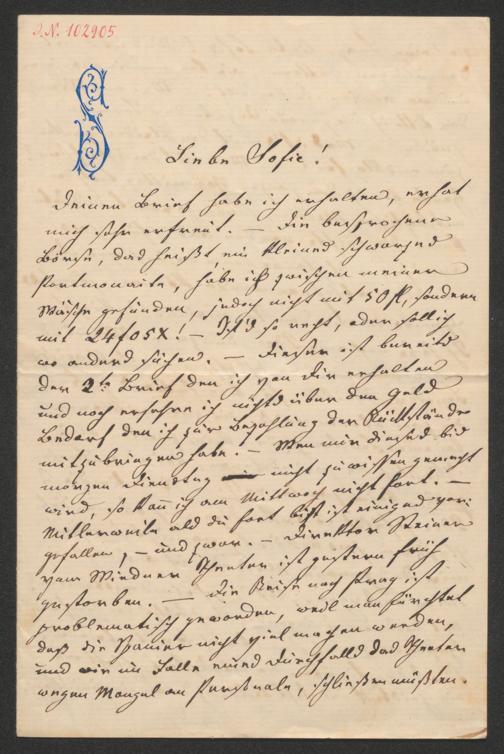 I.N. 102905
Liebe Sofie!
Deinen Brief habe ich erhalten, er hat
mich sehr erfreut. — Die besprochene
Börse, das heißt, ein kleines schwarzes
Portmonaite, habe ich zwischen meiner
Wäsche gefunden, jedoch nicht mit 50 fl, sondern
mit 24 f 05 x! — Ist's so recht, oder soll ich
wo anders suchen. — Dieser ist bereits
der 2te Brief den ich von Dir erhalten
und noch erfahre ich nichts über den Geld
Bedarf den ich zur Bezahlung der Rückstände
mitzubringen habe. — Wen mir dieses bis
morgen Dienstag nicht zu wissen gemacht
wird, so kan ich am Mittwoch nicht fort. —
Mitlerweile als du fort bist ist einiges vor:
gefallen, — und zwar. — Direktor Steiner
vom Wiedner Theater ist gestern früh
gestorben. — Die Reise nach Prag ist
problematisch geworden, weil man fürchtet
daß die nicht viel machen werden,
und wir im Falle eines Durchfalls das Theater
wegen Mangel an Personale, schließen müßten.